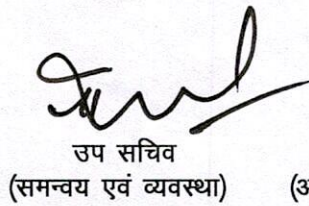 उप सचिव
(समन्वय एवं व्यवस्था) (अ